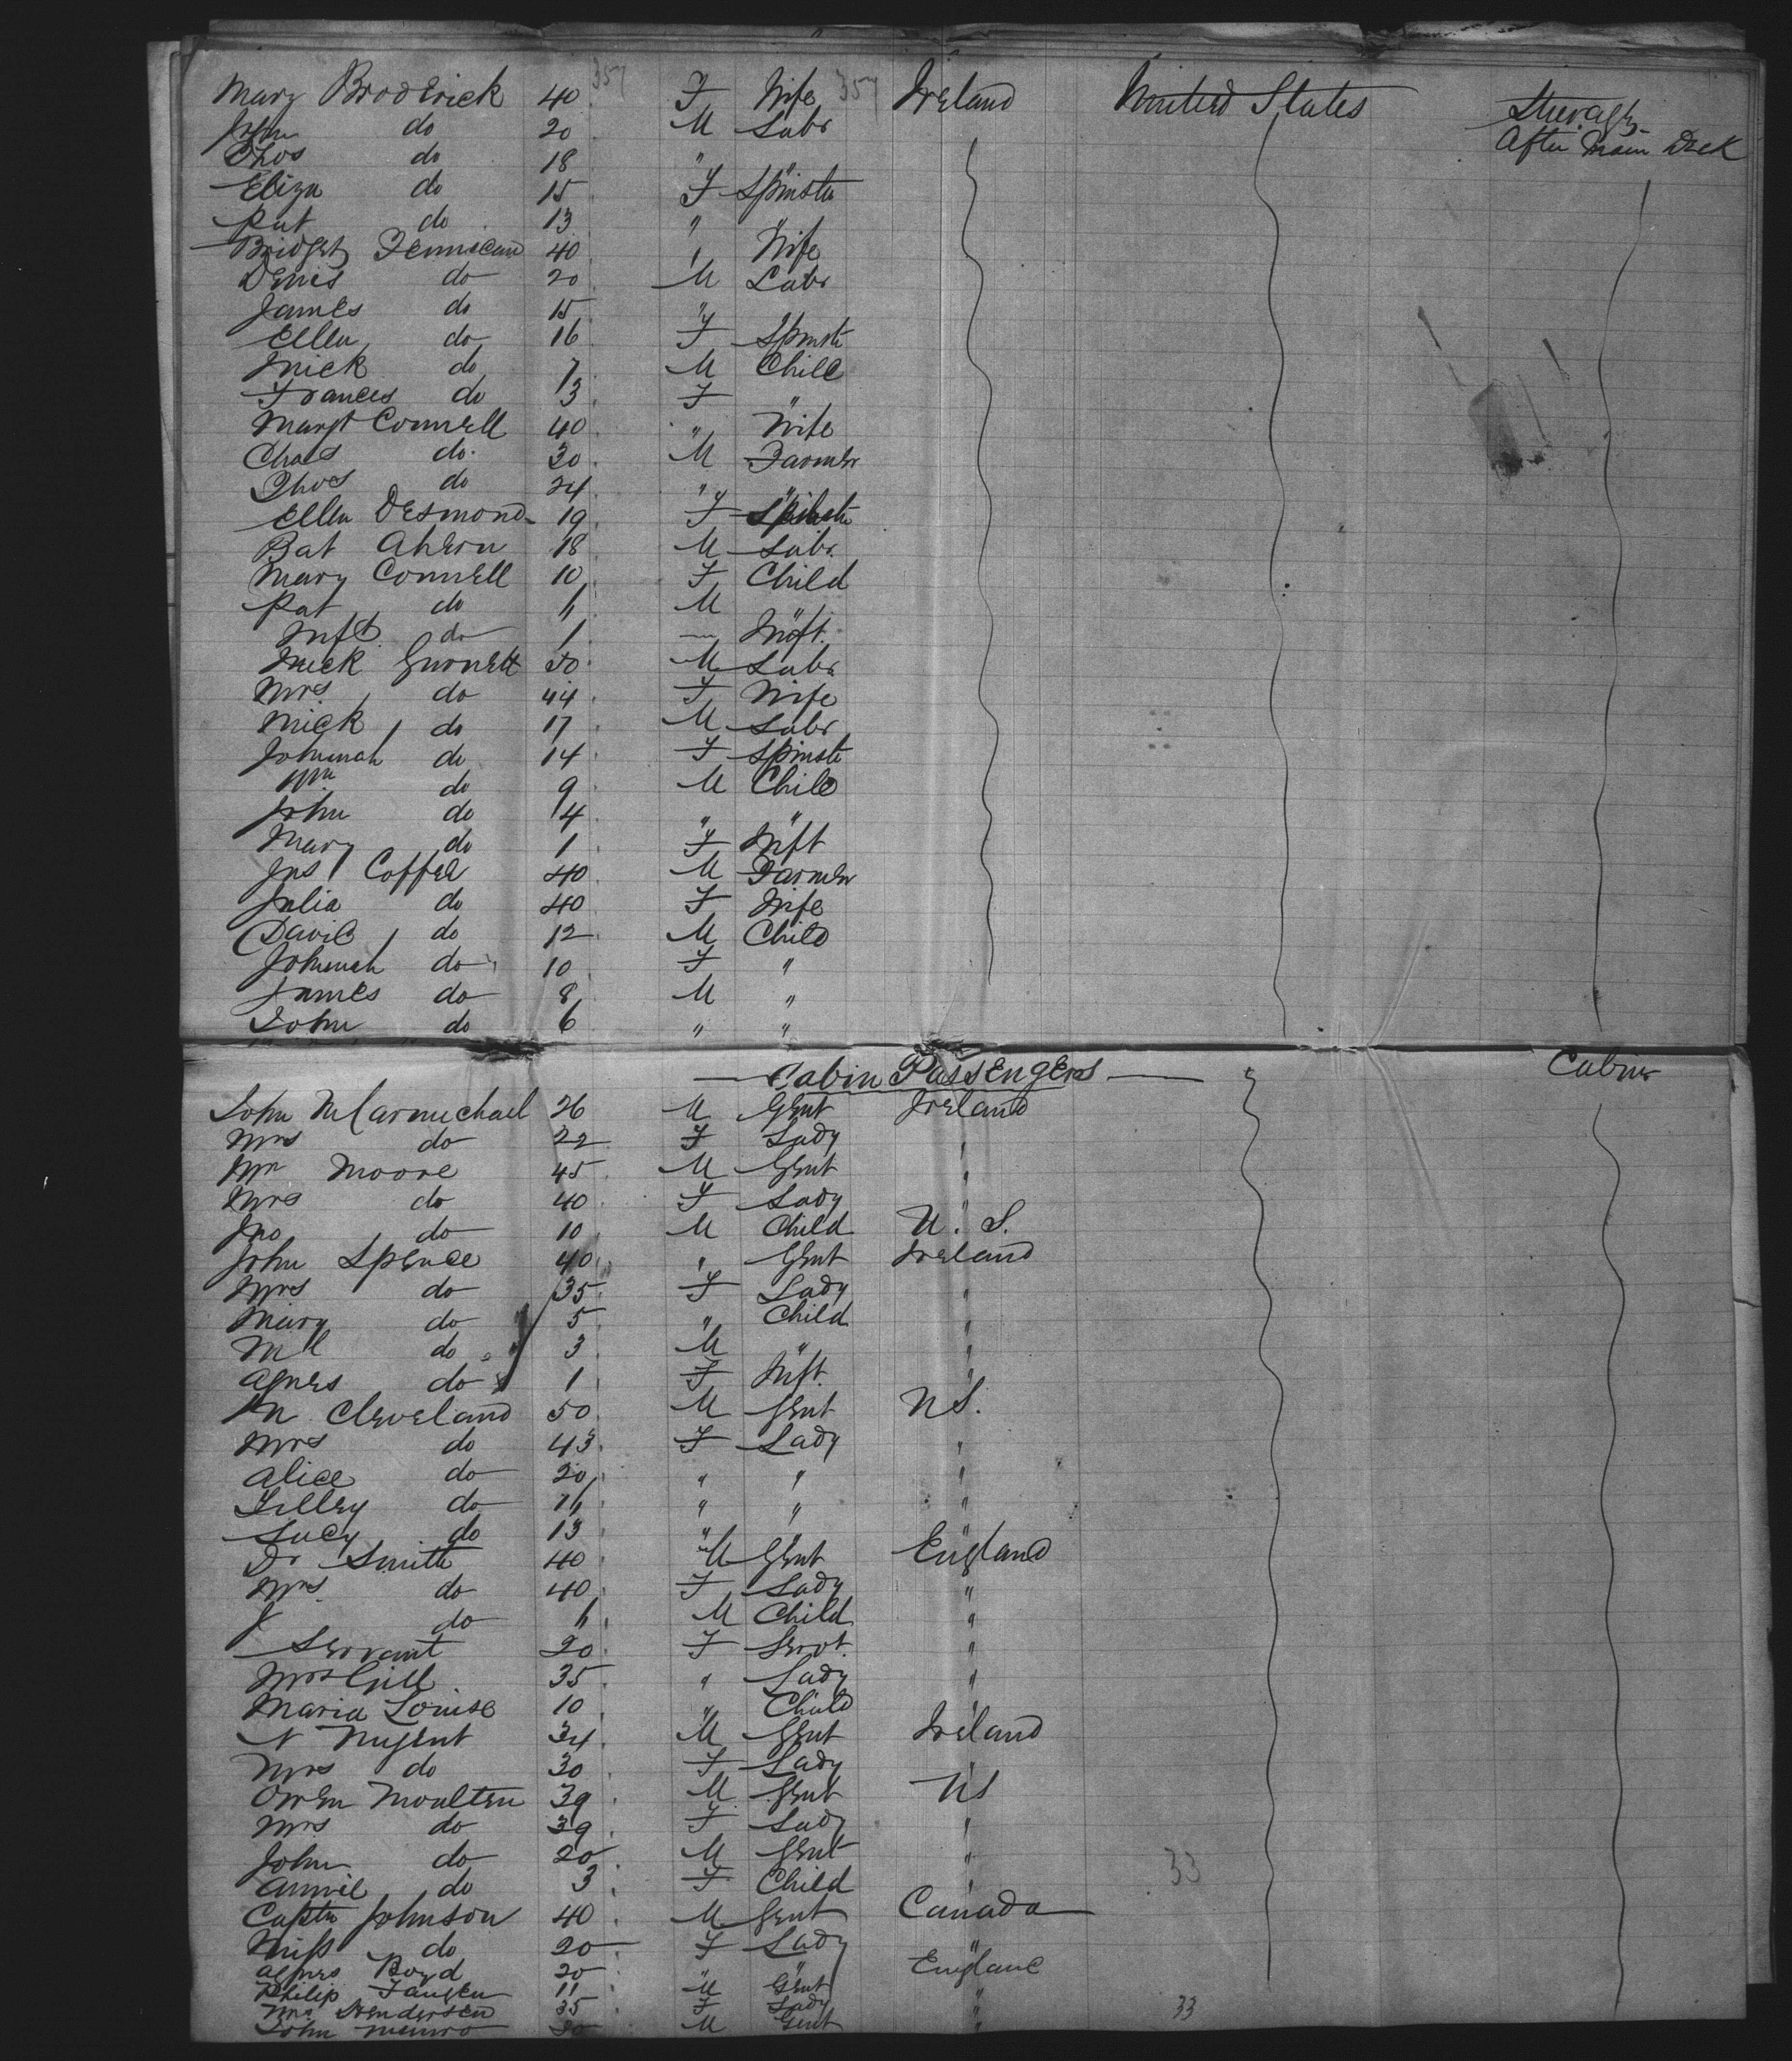 357 357
Mary Broderick 40 F Wife Ireland United States Steerage
John do 20 M Labr After Main Deck
Thos do 18 " "
Eliza do 15 F Spinstr
Pat do 13 " "
Bridget 40 " Wife
Denis do 20 M Labr
James do 15 " "
Ellen do 16 F Spinstr
Mick do 7 M Child
Frances do 3 F "
Margt Connell 40 " Wife
Chas do 30 M Farmer
Thos do 24 " "
Ellen Desmond 19 F Spinstr
Bat Ahern 18 M Labr
Mary Connell 10 F Child
Pat do M "
Inft do 1 Inft.
Mick Gurnett 50 M Labr
Mrs do 44 F Wife
Mick do 17 M Labr
Johannah do 14 F Spinstr
Wm do 9 M Child
John do 4 " "
Mary do 1 F Inft
Jas Coffee 40 M Farmer
Julia do 40 F Wife
David do 12 M Child
Johannah do 10 F "
James do 8 M "
John do 6 " "
Cabin Passengers Cabin
John McCarmichael 26 M Gent Ireland
Mrs do 22 F Lady "
Wm Moore 45 M Gent "
Mrs do 40 F Lady "
Jno do 10 M Child U. S.
John Spence 40 " Gent Ireland
Mrs do 35 F Lady "
Mary do 5 " Child "
Ml do 3 M " "
Agnes do 1 F Inft. "
Cleveland 50 M Gent US.
Mrs do 43 F Lady "
Alice do 20 " " "
do " " "
Lucy do 13 " " "
Dr Smith 40 M Gent England
Mrs do 40 F Lady "
J do M Child "
Servant 20 F Servt. "
Mrs Gill 35 " Lady "
Maria Louise 10 " Child "
N Nugent 34 M Gent Ireland
Mrs do 30 F Lady "
Owen Moulten 39 M Gent US
Mrs do 39 F Lady "
John do 20 M Gent "
Annie do 3 F Child " 33
Captn Johnson 40 M Gent Canada
Miss do 20 F Lady "
Agnes Boyd 20 " " England
Philip 11 M Gent "
Mrs Hendersen 35 F Lady " 33
John Munro M Gent "